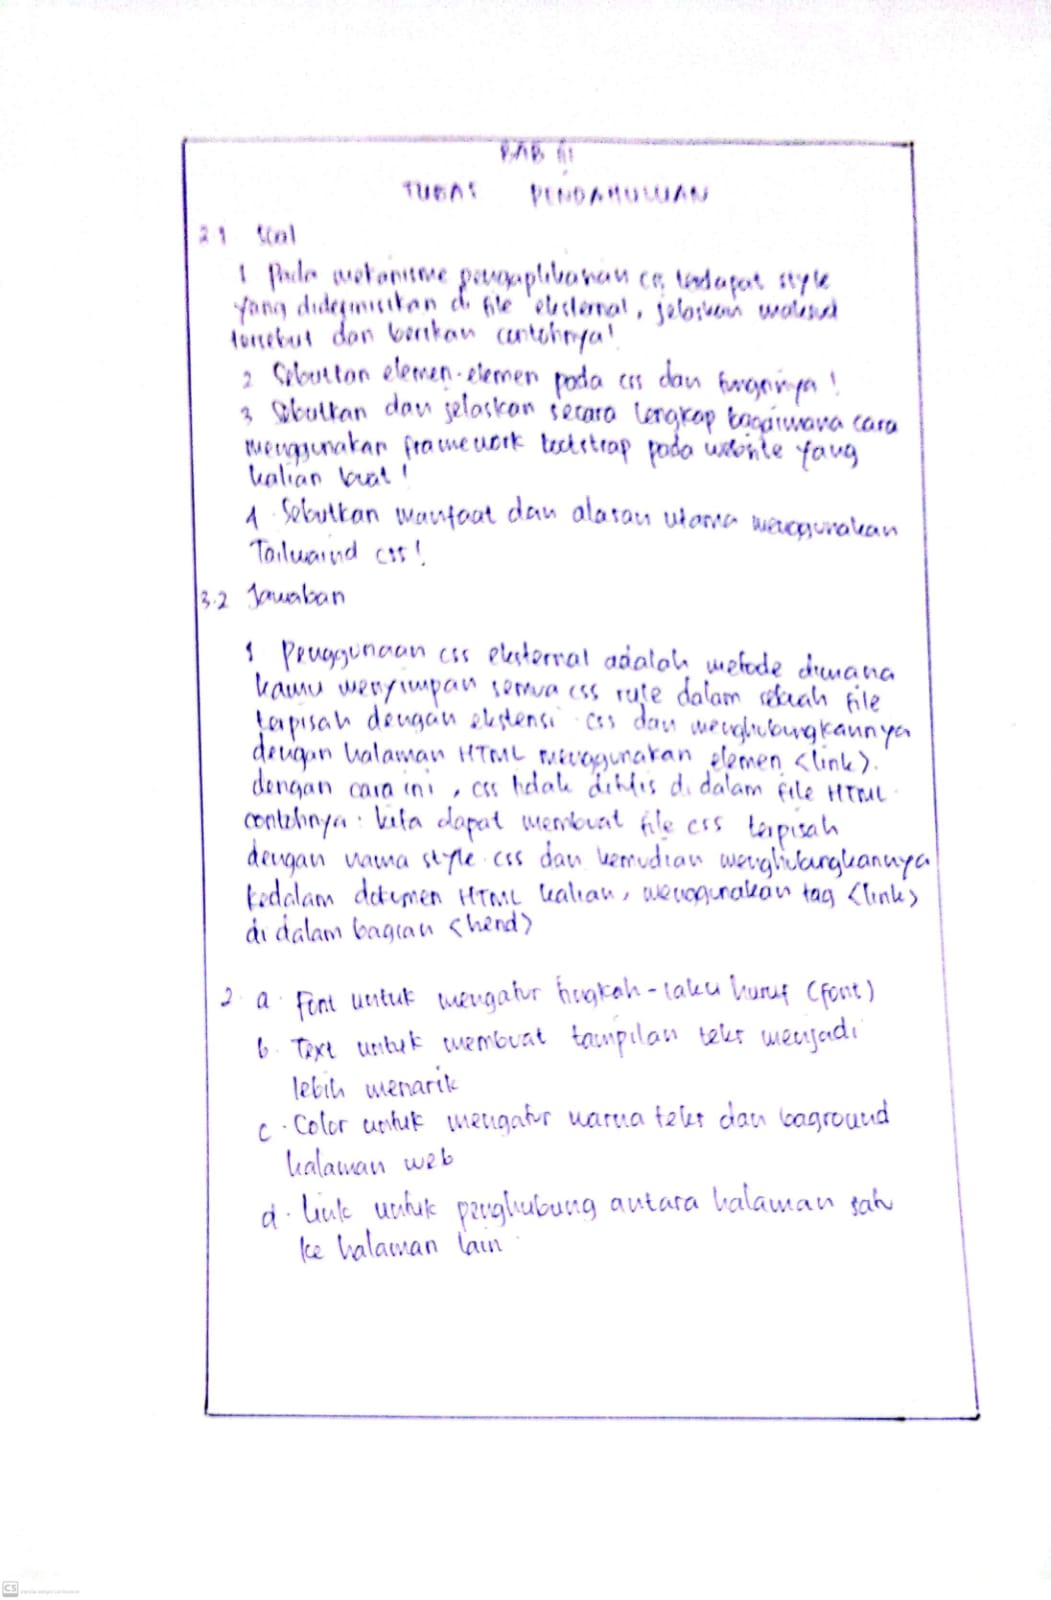 BAB III
TUGAS PENDAHULUAN
3.1 Soal
1 Pada mekanisme pengaplikasian css terdapat style
yang didefinisikan di file eksternal, jelaskan maksud
tersebut dan berikan contohnya!
2 Sebutkan elemen-elemen pada css dan fungsinya!
3 Sebutkan dan jelaskan secara lengkap bagaimana cara
menggunakan framework bootstrap pada website yang
kalian buat!
4 Sebutkan manfaat dan alasan utama menggunakan
Tailwaind css!
3.2 Jawaban
1 Penggunaan css eksternal adalah metode dimana
kamu menyimpan semua css rule dalam sebuah file
terpisah dengan ekstensi .css dan menghubungkannya
dengan halaman HTML menggunakan elemen <link>.
dengan cara ini, css tidak ditulis di dalam file HTML.
contohnya: kita dapat membuat file css terpisah
dengan nama style.css dan kemudian menghubungkannya
kedalam dokumen HTML kalian, menggunakan tag <link>
di dalam bagian <head>
2. a. Font untuk mengatur tingkah-laku huruf (font)
b. Text untuk membuat tampilan teks menjadi
lebih menarik
c. Color untuk mengatur warna teks dan baground
halaman web
d. Link untuk penghubung antara halaman satu
ke halaman lain.
CS